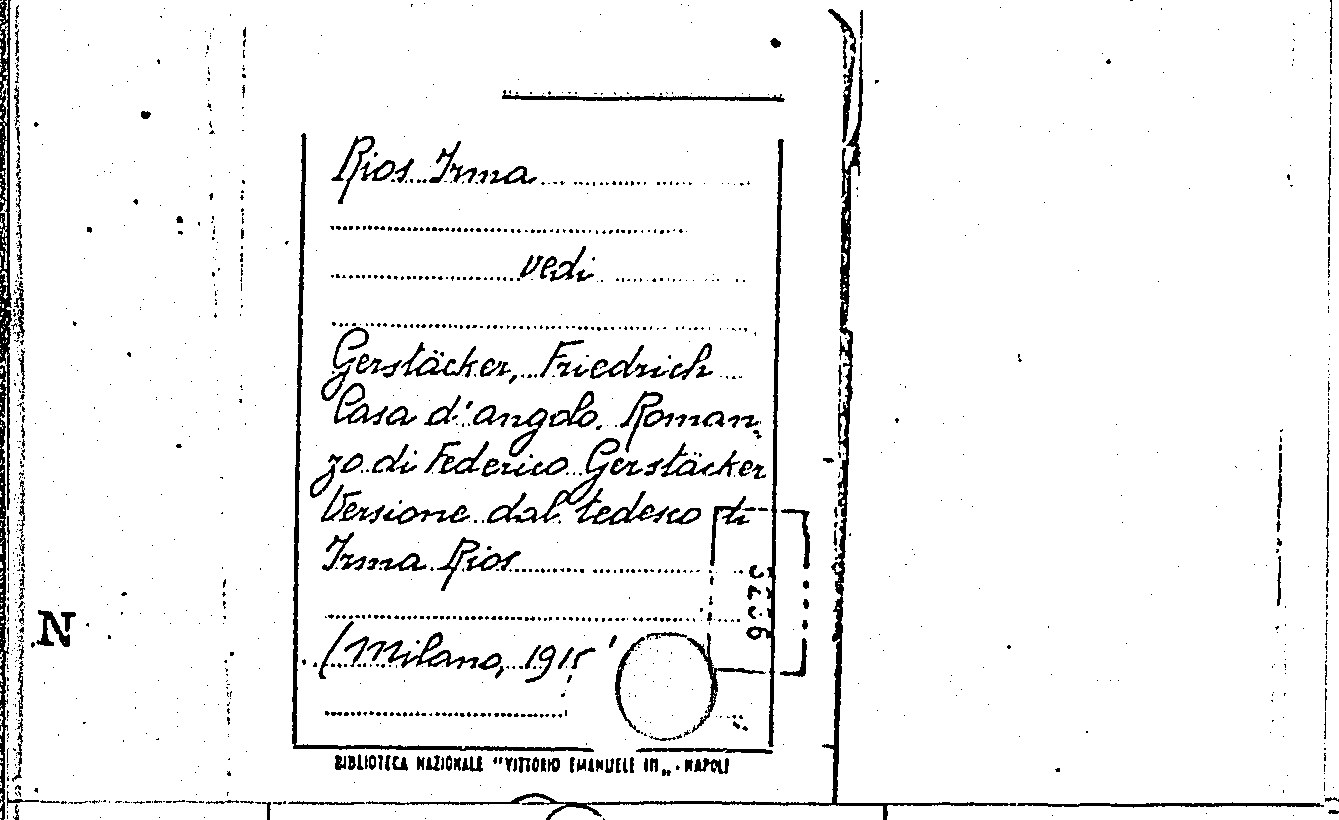 Rios Irma
vedi
Gerstäcker, Friedrich
Casa d'angolo. Roman-
zo di Federico Gerstäcker
Versione dal tedesco di
Irma Rios
(Milano, 1915)
N
BIBLIOTECA NAZIONALE "VITTORIO EMANUELE III„ - NAPOLI